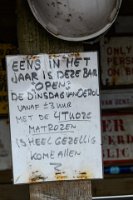 EENS IN HET
JAAR IS DEZE BAR
OPEN:
DE DINSDAG VAN
VANAF £3 UUR
MET DE 4
MATROZEN
IS HEEL GEZELLIG
KOMT ALLEN